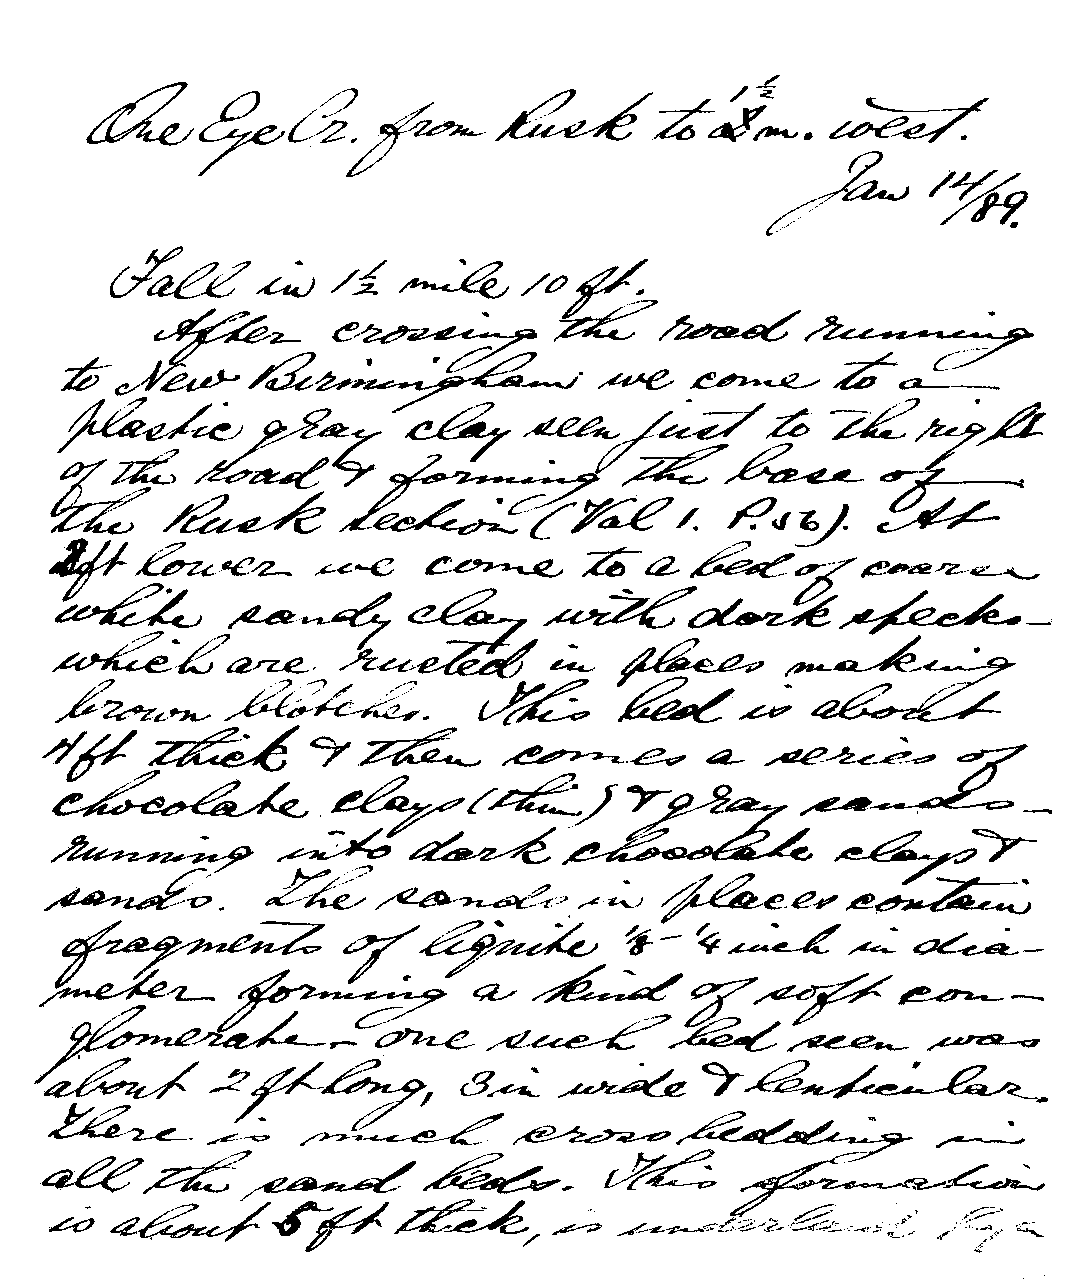 One Eye Cr. from Rusk to 1½ m. west.
Jan 14/89.
Fall in 1½ mile 10 ft.
After crossing the road running
to New Birmingham we come to a
plastic gray clay seen just to the right
of the road & forming the base of
the Rusk section (Vol 1. P. 56). At
ft lower we come to a bed of coarse
white sandy clay with dark specks
which are rusted in places making
brown blotches. This bed is about
4 ft thick & then comes a series of
chocolate clays (thin) & gray sands
running into dark chocolate clays &
sands. The sands in places contain
fragments of lignite 1/8 - 1/4 inch in dia-
meter forming a kind of soft con-
glomerate - one such bed seen was
about 2 ft long, 3 in wide & lenticular.
There is much cross bedding in
all the sand beds. This formation
is about 5 ft thick, is underlaid by a